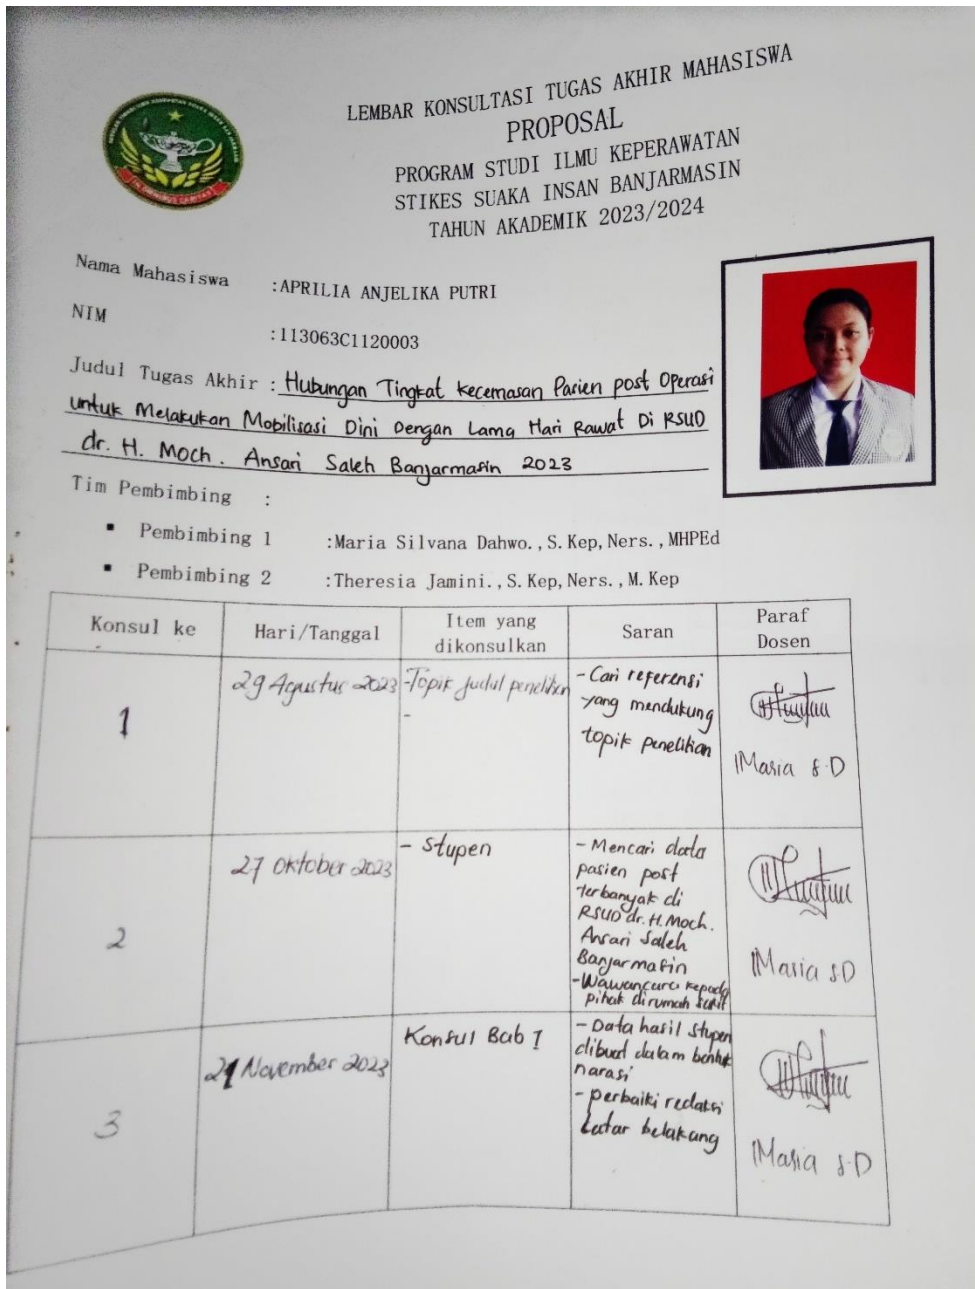 LEMBAR KONSULTASI TUGAS AKHIR MAHASISWA
PROPOSAL
PROGRAM STUDI ILMU KEPERAWATAN
STIKES SUAKA INSAN BANJARMASIN
TAHUN AKADEMIK 2023/2024
Nama Mahasiswa :APRILIA ANJELIKA PUTRI
NIM :113063C1120003
Judul Tugas Akhir : Hubungan Tingkat Kecemasan Pasien post Operasi
untuk Melakukan Mobilisasi Dini Dengan Lama Hari Rawat Di RSUD
dr. H. Moch. Ansari Saleh Banjarmasin 2023
Tim Pembimbing :
▪ Pembimbing 1 :Maria Silvana Dahwo.,S.Kep,Ners.,MHPEd
▪ Pembimbing 2 :Theresia Jamini.,S.Kep,Ners.,M.Kep
Konsul ke
Hari/Tanggal
Item yang
dikonsulkan
Saran
Paraf
Dosen
1
29 Agustus 2023
-Topik judul penelitian
-
- Cari referensi
yang mendukung
topik penelitian
Maria S.D
2
27 Oktober 2023
- Stupen
- Mencari data
pasien post
terbanyak di
RSUD dr. H. Moch.
Ansari Saleh
Banjarmasin
- Wawancara kepada
pihak dirumah sakit
Maria S.D
3
21 November 2023
Konsul Bab 1
- Data hasil stupen
dibuat dalam bentuk
narasi
- perbaiki redaksi
Latar belakang
Maria S.D